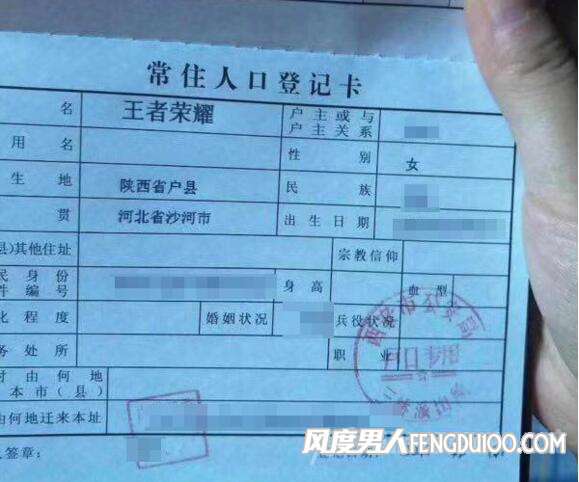 常住人口登记卡
名 王者荣耀 户主或与
户主关系
用名 性别 女
生地 陕西省户县 民族
贯 河北省沙河市 出生日期
县)其他住址 宗教信仰
民身份
件编号 身高 血型
化程度 婚姻状况 兵役状况
务处所 职业
时由何地
本市(县)
由何地迁来本址
人签章:
风度男人FENGDU100.COM